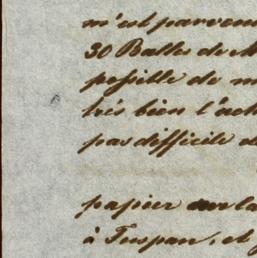 m'est parvenu
30 Balles de M
possible de m
très bien l'ach
pas difficile d
papier sur la
à Tuspan, et j